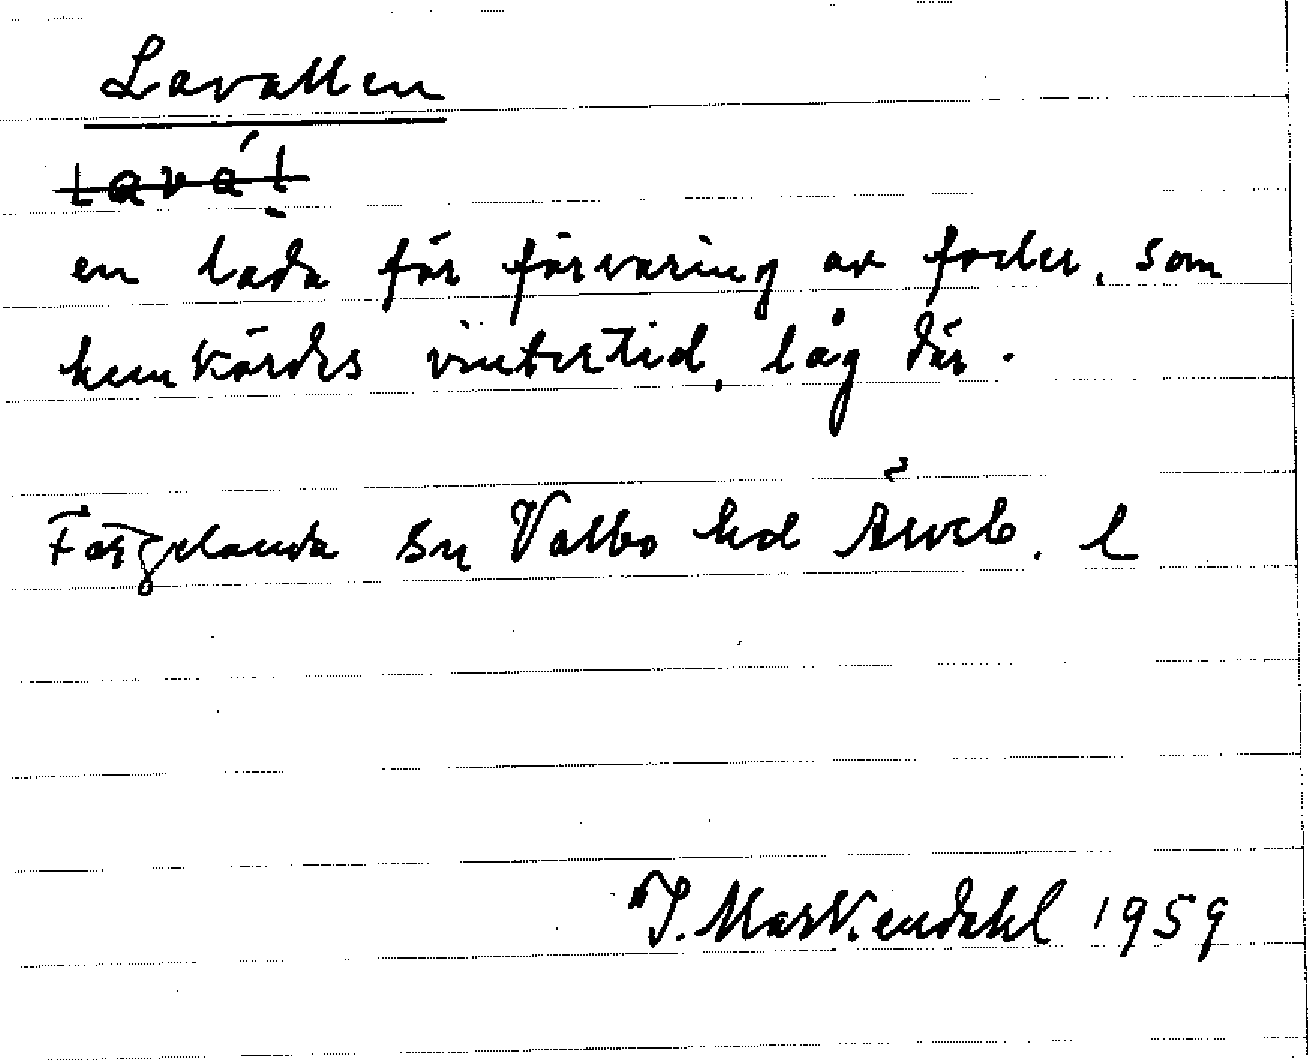 Lavallen
lavál
en lada för förvaring av foder, som
hemkördes vintertid, låg där.
Färgelanda sn Valbo hd Älvsb. l
J. Markendahl 1959